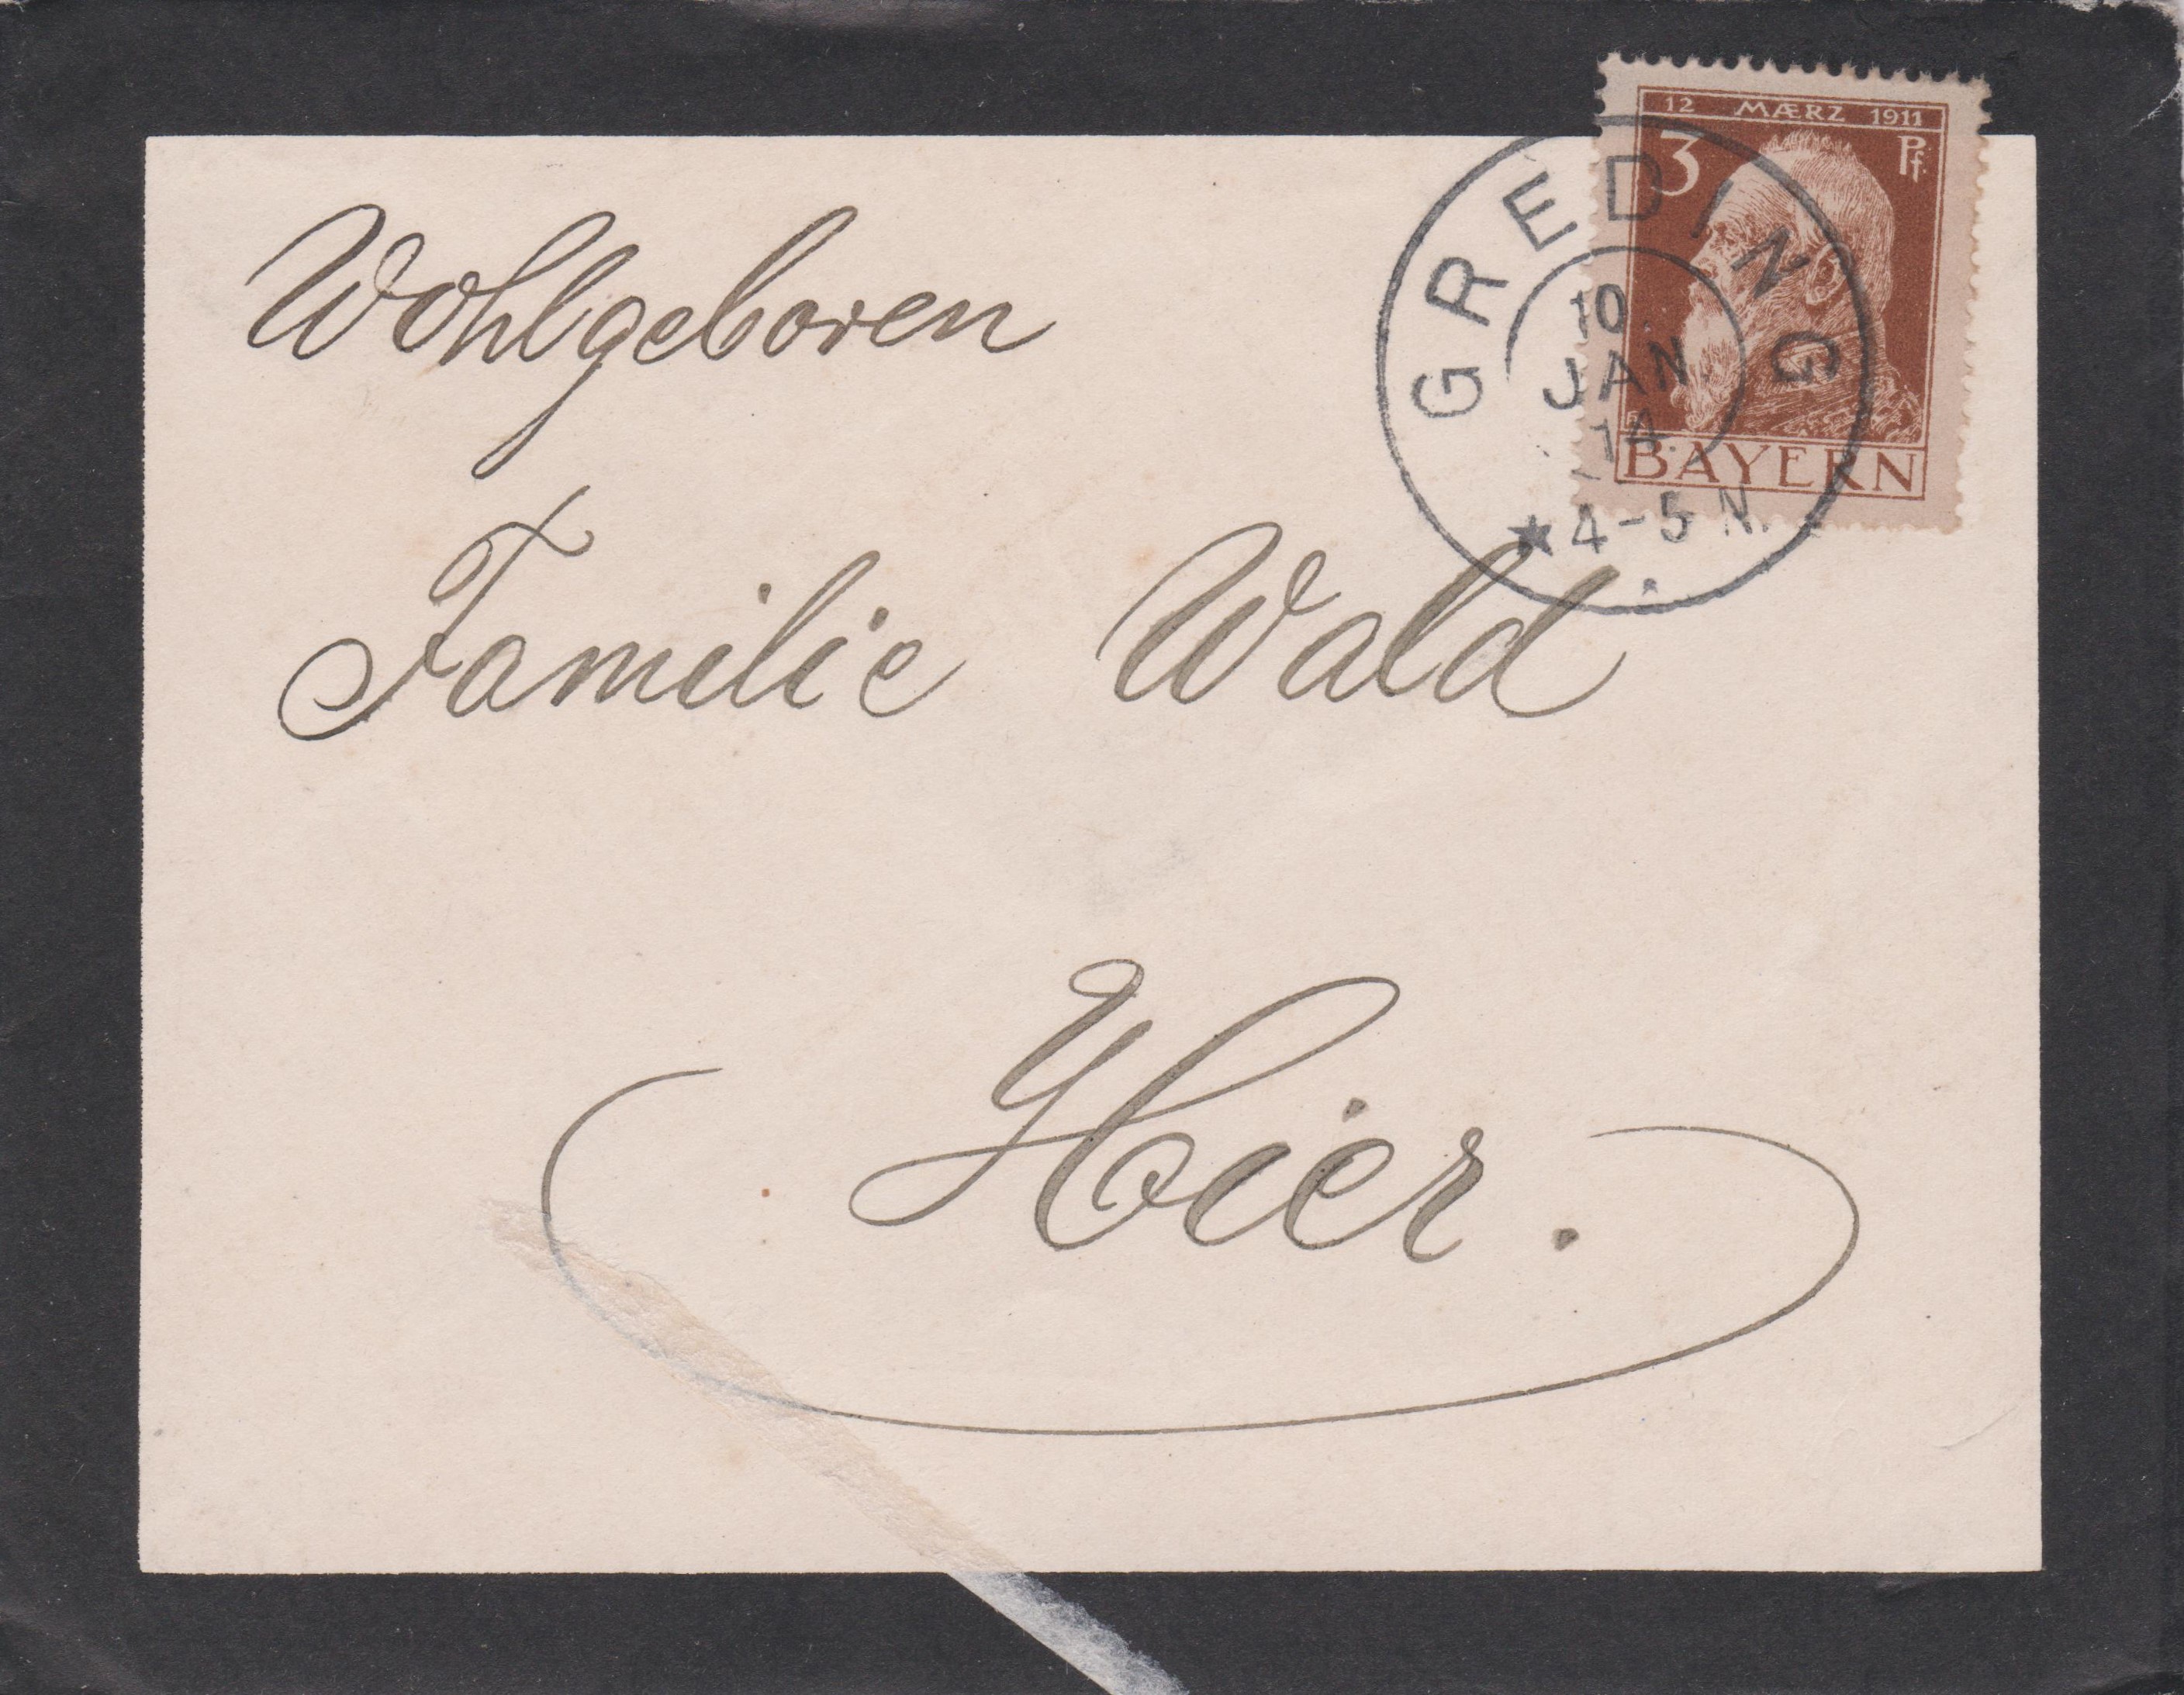 12 MÆRZ 1911
3 Pf
BAYERN
GREDING
10.
JAN
14
★ 4-5 N.
Wohlgeboren
Familie Wald
Hier.